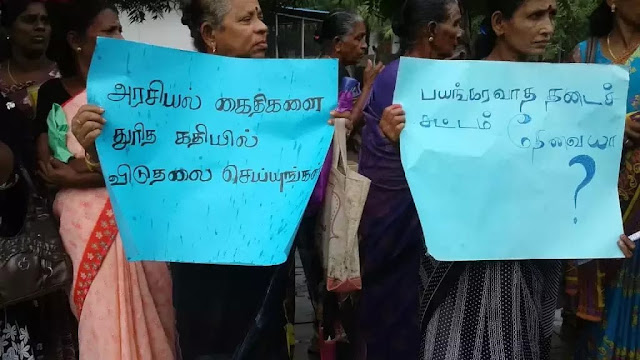 அரசியல் கைதிகளை
துரித கதியில்
விடுதலை செய்யுங்கள்
பயங்கரவாத தடைச்
சட்டம் தேவையா
?